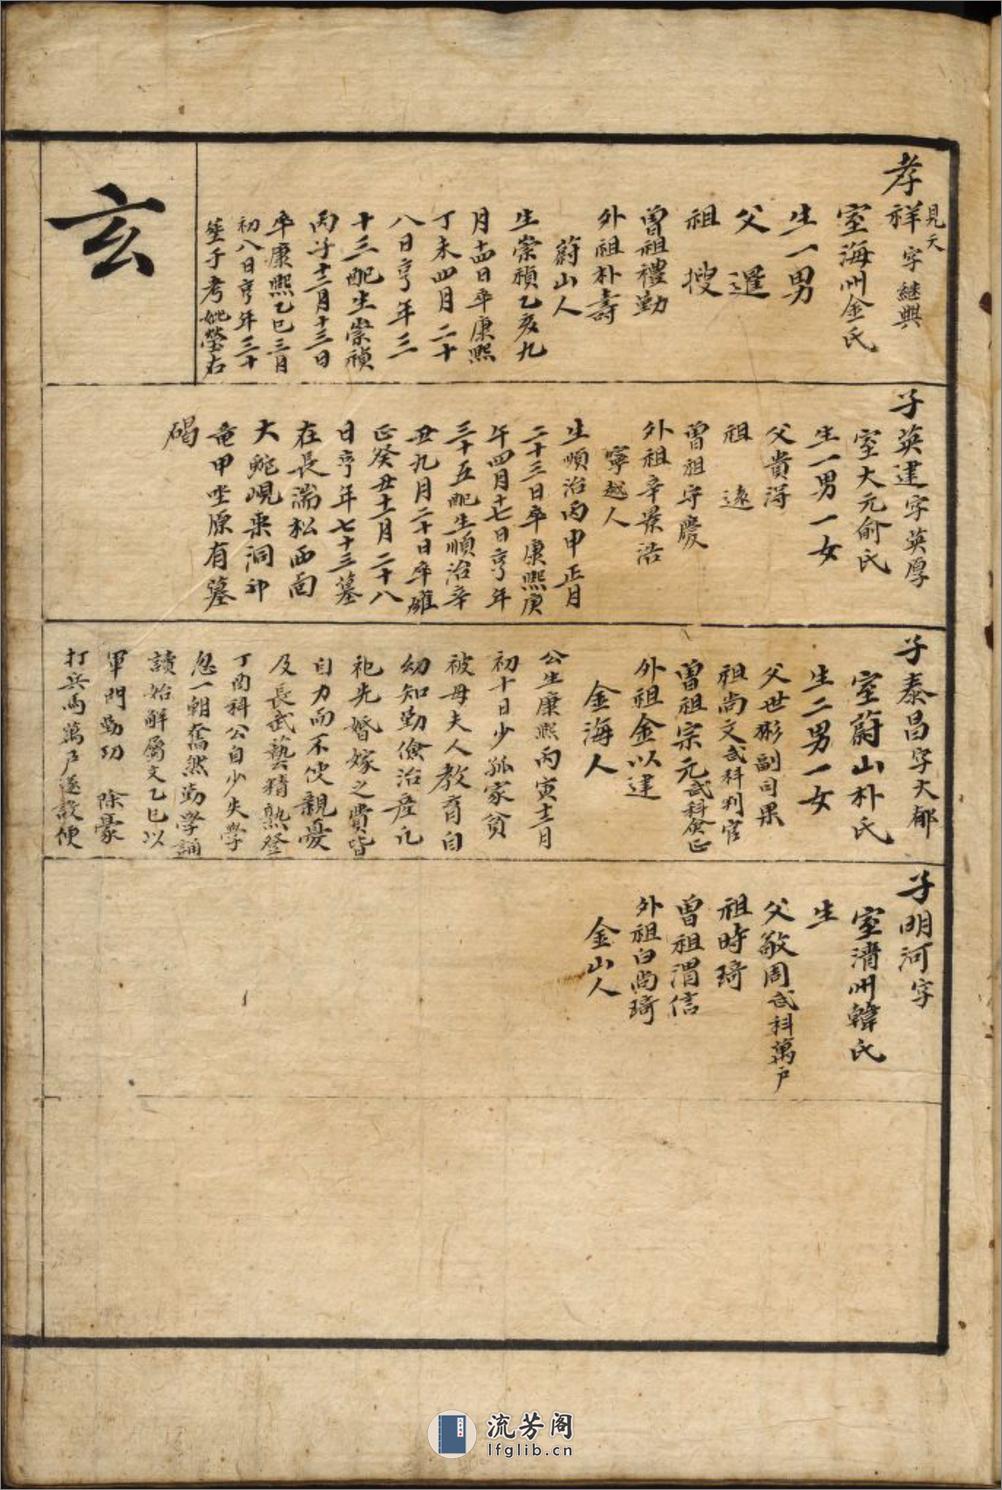 孝祥字継興
見天
室海州金氏
生一男
父暹
祖搜
曽祖禮勤
外祖朴壽
蔚山人
生崇禎乙亥九
月十四日卒康熙
丁未四月二十
八日亨年三
十三配生崇禎
丙子十二月十三日
卒康熙乙巳三月
初八日亨年三十
塟于考妣塋右
玄
子英建字英厚
室大元俞氏
生一男一女
父貴淂
祖遠
曽祖守慶
外祖辛景浩
寧越人
生順治丙申正月
二十三日卒康熙庚
午四月十七日亨年
三十五配生順治辛
丑九月二十日卒雍
正癸丑十二月二十八
日亨年七十三墓
在長湍松西面
大鮀峴栗洞卯
竜甲坐原有墓
碣
子泰昌字大郁
室蔚山朴氏
生二男一女
父世彬副司果
祖尚文武科判官
曽祖宗元武科僉正
外祖金以建
金海人
公生康熙丙寅十二月
初十日少孤家貧
被母夫人教育自
幼知勤儉治産凢
祀先婚嫁之費皆
自力而不使親憂
及長武藝精熟登
丁酉科公自少失學
忽一朝奮然勤學誦
讀始解屬文乙巳以
軍門勤功 除豪
打兵禹萬戶遂設便
子明河字
室淸州韓氏
生
父敬周武科萬戶
祖時琦
曽祖渭信
外祖白尚琦
金山人
流芳阁
lfglib.cn